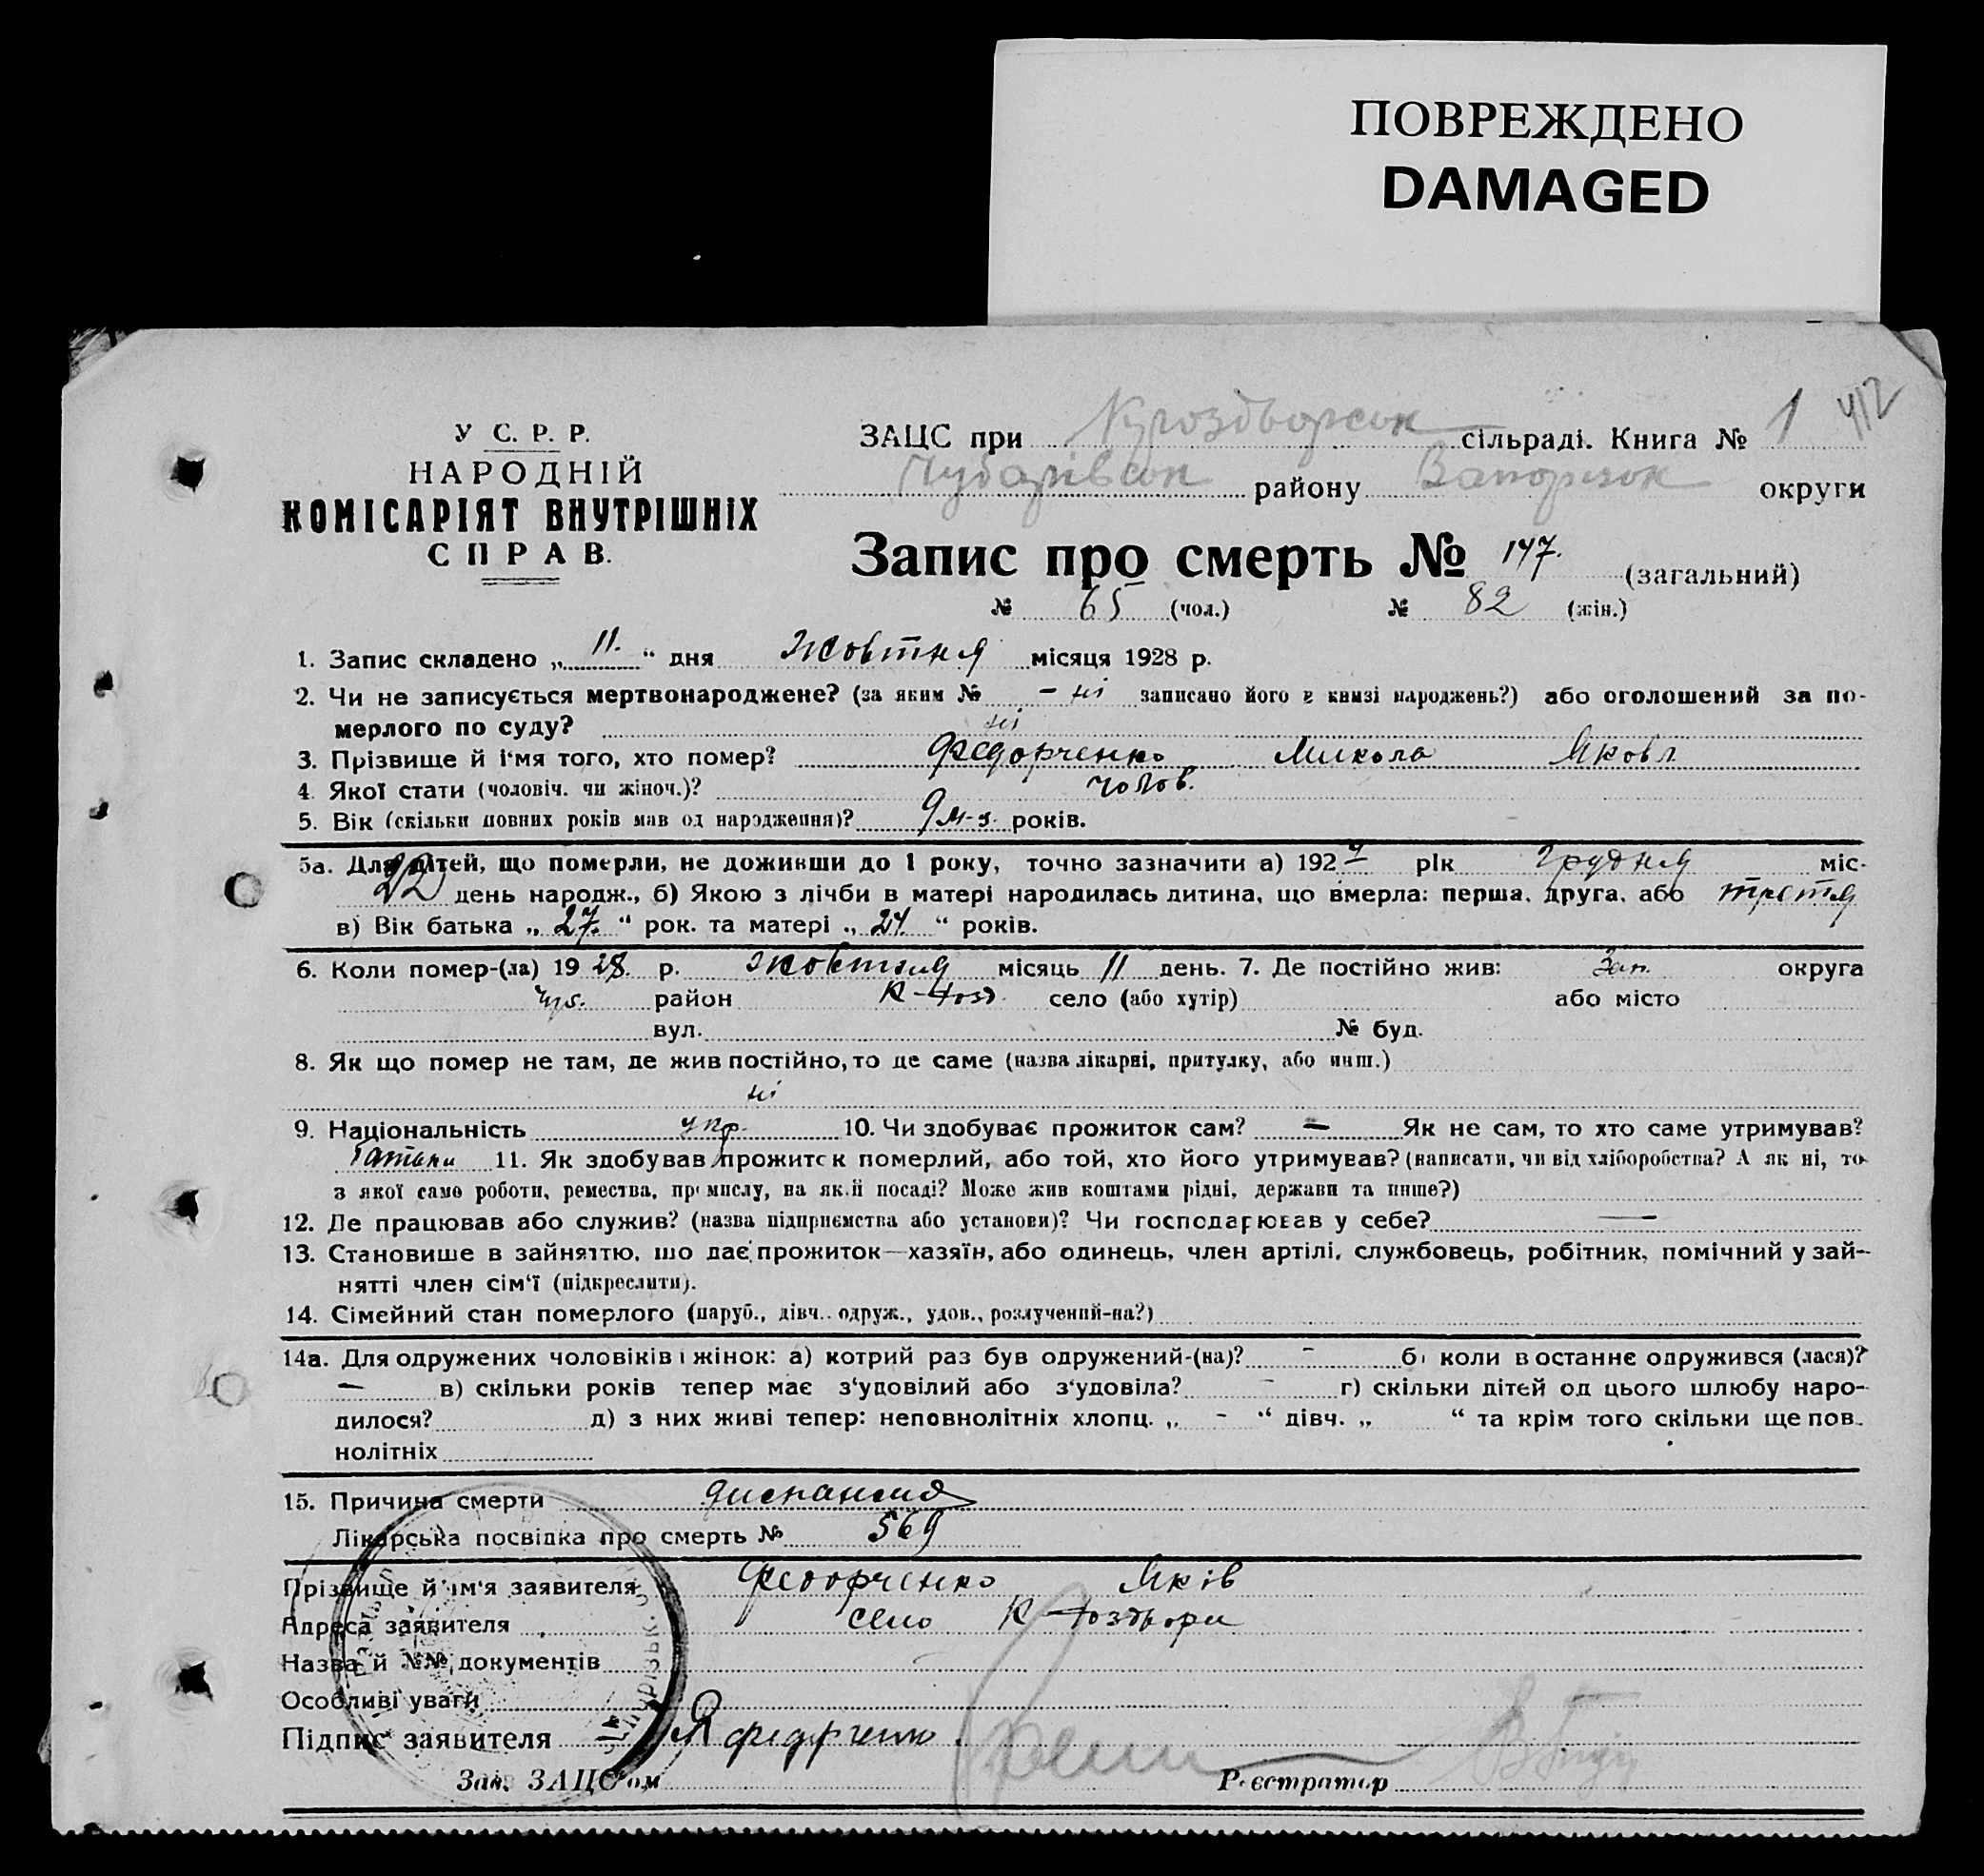 ПОВРЕЖДЕНО
DAMAGED
412
У С. Р. Р.
НАРОДНІЙ
КОМІСАРІЯТ ВНУТРІШНІХ
СПРАВ.
ЗАЦС при сільраді. Книга № 1
Чубарівськ району Запорізьк округи
Запис про смерть № 147. (загальний)
№ 65 (чол.) № 82 (жін.)
1. Запис складено „ 11. “ дня Жовтня місяця 1928 р.
2. Чи не записується мертвонароджене? (за яким № - ні записано його в книзі народжень?) або оголошений за по-
мерлого по суду? ні
3. Прізвище й і‘мя того, хто помер? Федорченко Микола Яковл
4. Якої стати (чоловіч. чи жіноч.)? чолов.
5. Вік (скільки повних років мав од народження)? 9 м-в. років.
5а. Для дітей, що померли, не доживши до 1 року, точно зазначити а) 1927 рік Грудня міс-
22 день народж., б) Якою з лічби в матері народилась дитина, що вмерла: перша, друга, або третя
в) Вік батька „ 27. “ рок. та матері „ 24. “ років.
6. Коли помер-(ла) 19 28. р. жовтня місяць 11 день. 7. Де постійно жив: Зап. округа
Чуб. район село (або хутір) або місто
вул. № буд.
8. Як що помер не там, де жив постійно, то де саме (назва лікарні, притулку, або инш.)
ні
9. Національність укр. 10. Чи здобуває прожиток сам? — Як не сам, то хто саме утримував?
Батьки 11. Як здобував прожиток померлий, або той, хто його утримував? (написати, чи від хліборобства? А як ні, то
з якої саме роботи, ремества, промислу, на якій посаді? Може жив коштами рідні, держави та инше?)
12. Де працював або служив? (назва підприємства або установи)? Чи господарював у себе? —
13. Становище в зайняттю, що дає прожиток—хазяїн, або одинець, член артілі, службовець, робітник, помічний у зай-
нятті член сім‘ї (підкреслити).
14. Сімейний стан померлого (паруб., дівч., одруж., удов., розлучений-на?)
14а. Для одружених чоловіків і жінок: а) котрий раз був одружений-(на)? - б) коли в останнє одружився (лася)?
— в) скільки років тепер має з‘удовілий або з‘удовіла? - г) скільки дітей од цього шлюбу наро-
дилося? д) з них живі тепер: неповнолітніх хлопц. „ - “ дівч. „ “ та крім того скільки ще пов-
нолітніх
15. Причина смерти
Лікарська посвідка про смерть № 569
Прізвище й ім‘я заявителя Федорченко Яків
Адреса заявителя село
Назва й №№ документів
Особливі уваги
Підпис заявителя Я Федорченко.
Зав. ЗАЦС‘ом Реєстратор